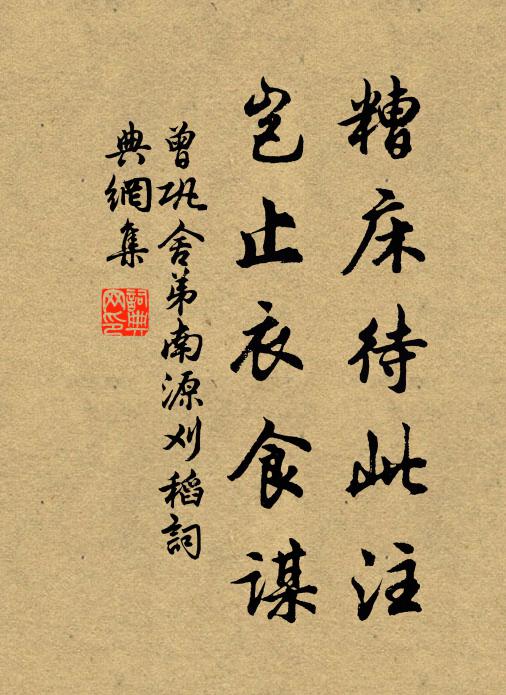 糟床待此注
豈止衣食謀
曾巩舍弟南源刈稻詞
典網集
詞典網印